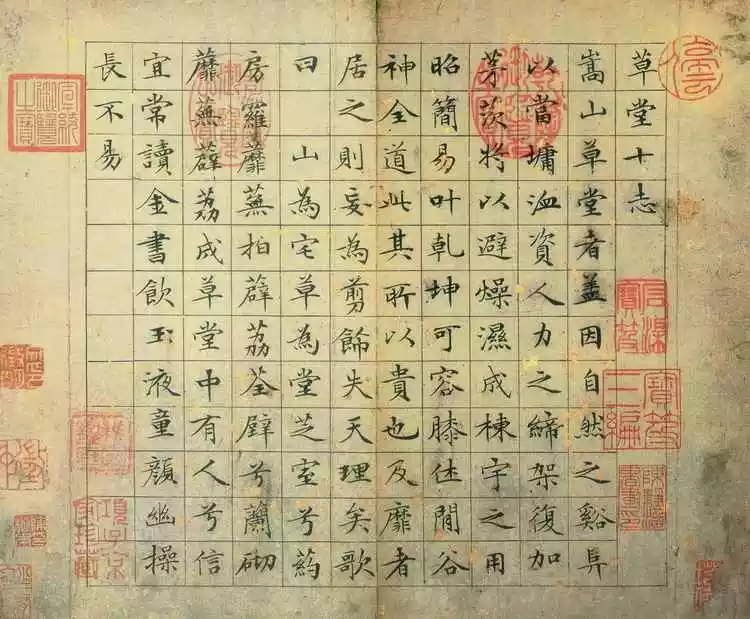 草堂十志
嵩山草堂者盖因自然之谿阜
以當墉洫資人力之締架復加
茅茨将以避燥濕成棟宇之用
昭簡易叶乾坤可容膝休閒谷
神全道此其所以貴也及靡者
居之則妄為剪餙失天理矣歌
曰 山為宅草為堂芝室兮葯
房羅蘼蕪拍薜荔荃壁兮蘭砌
蘼蕪薜荔成草堂中有人兮信
宜常讀金書飲玉液童顏幽操
長不易
寶笈三編
宣統御覽之寶
項子京家珍藏